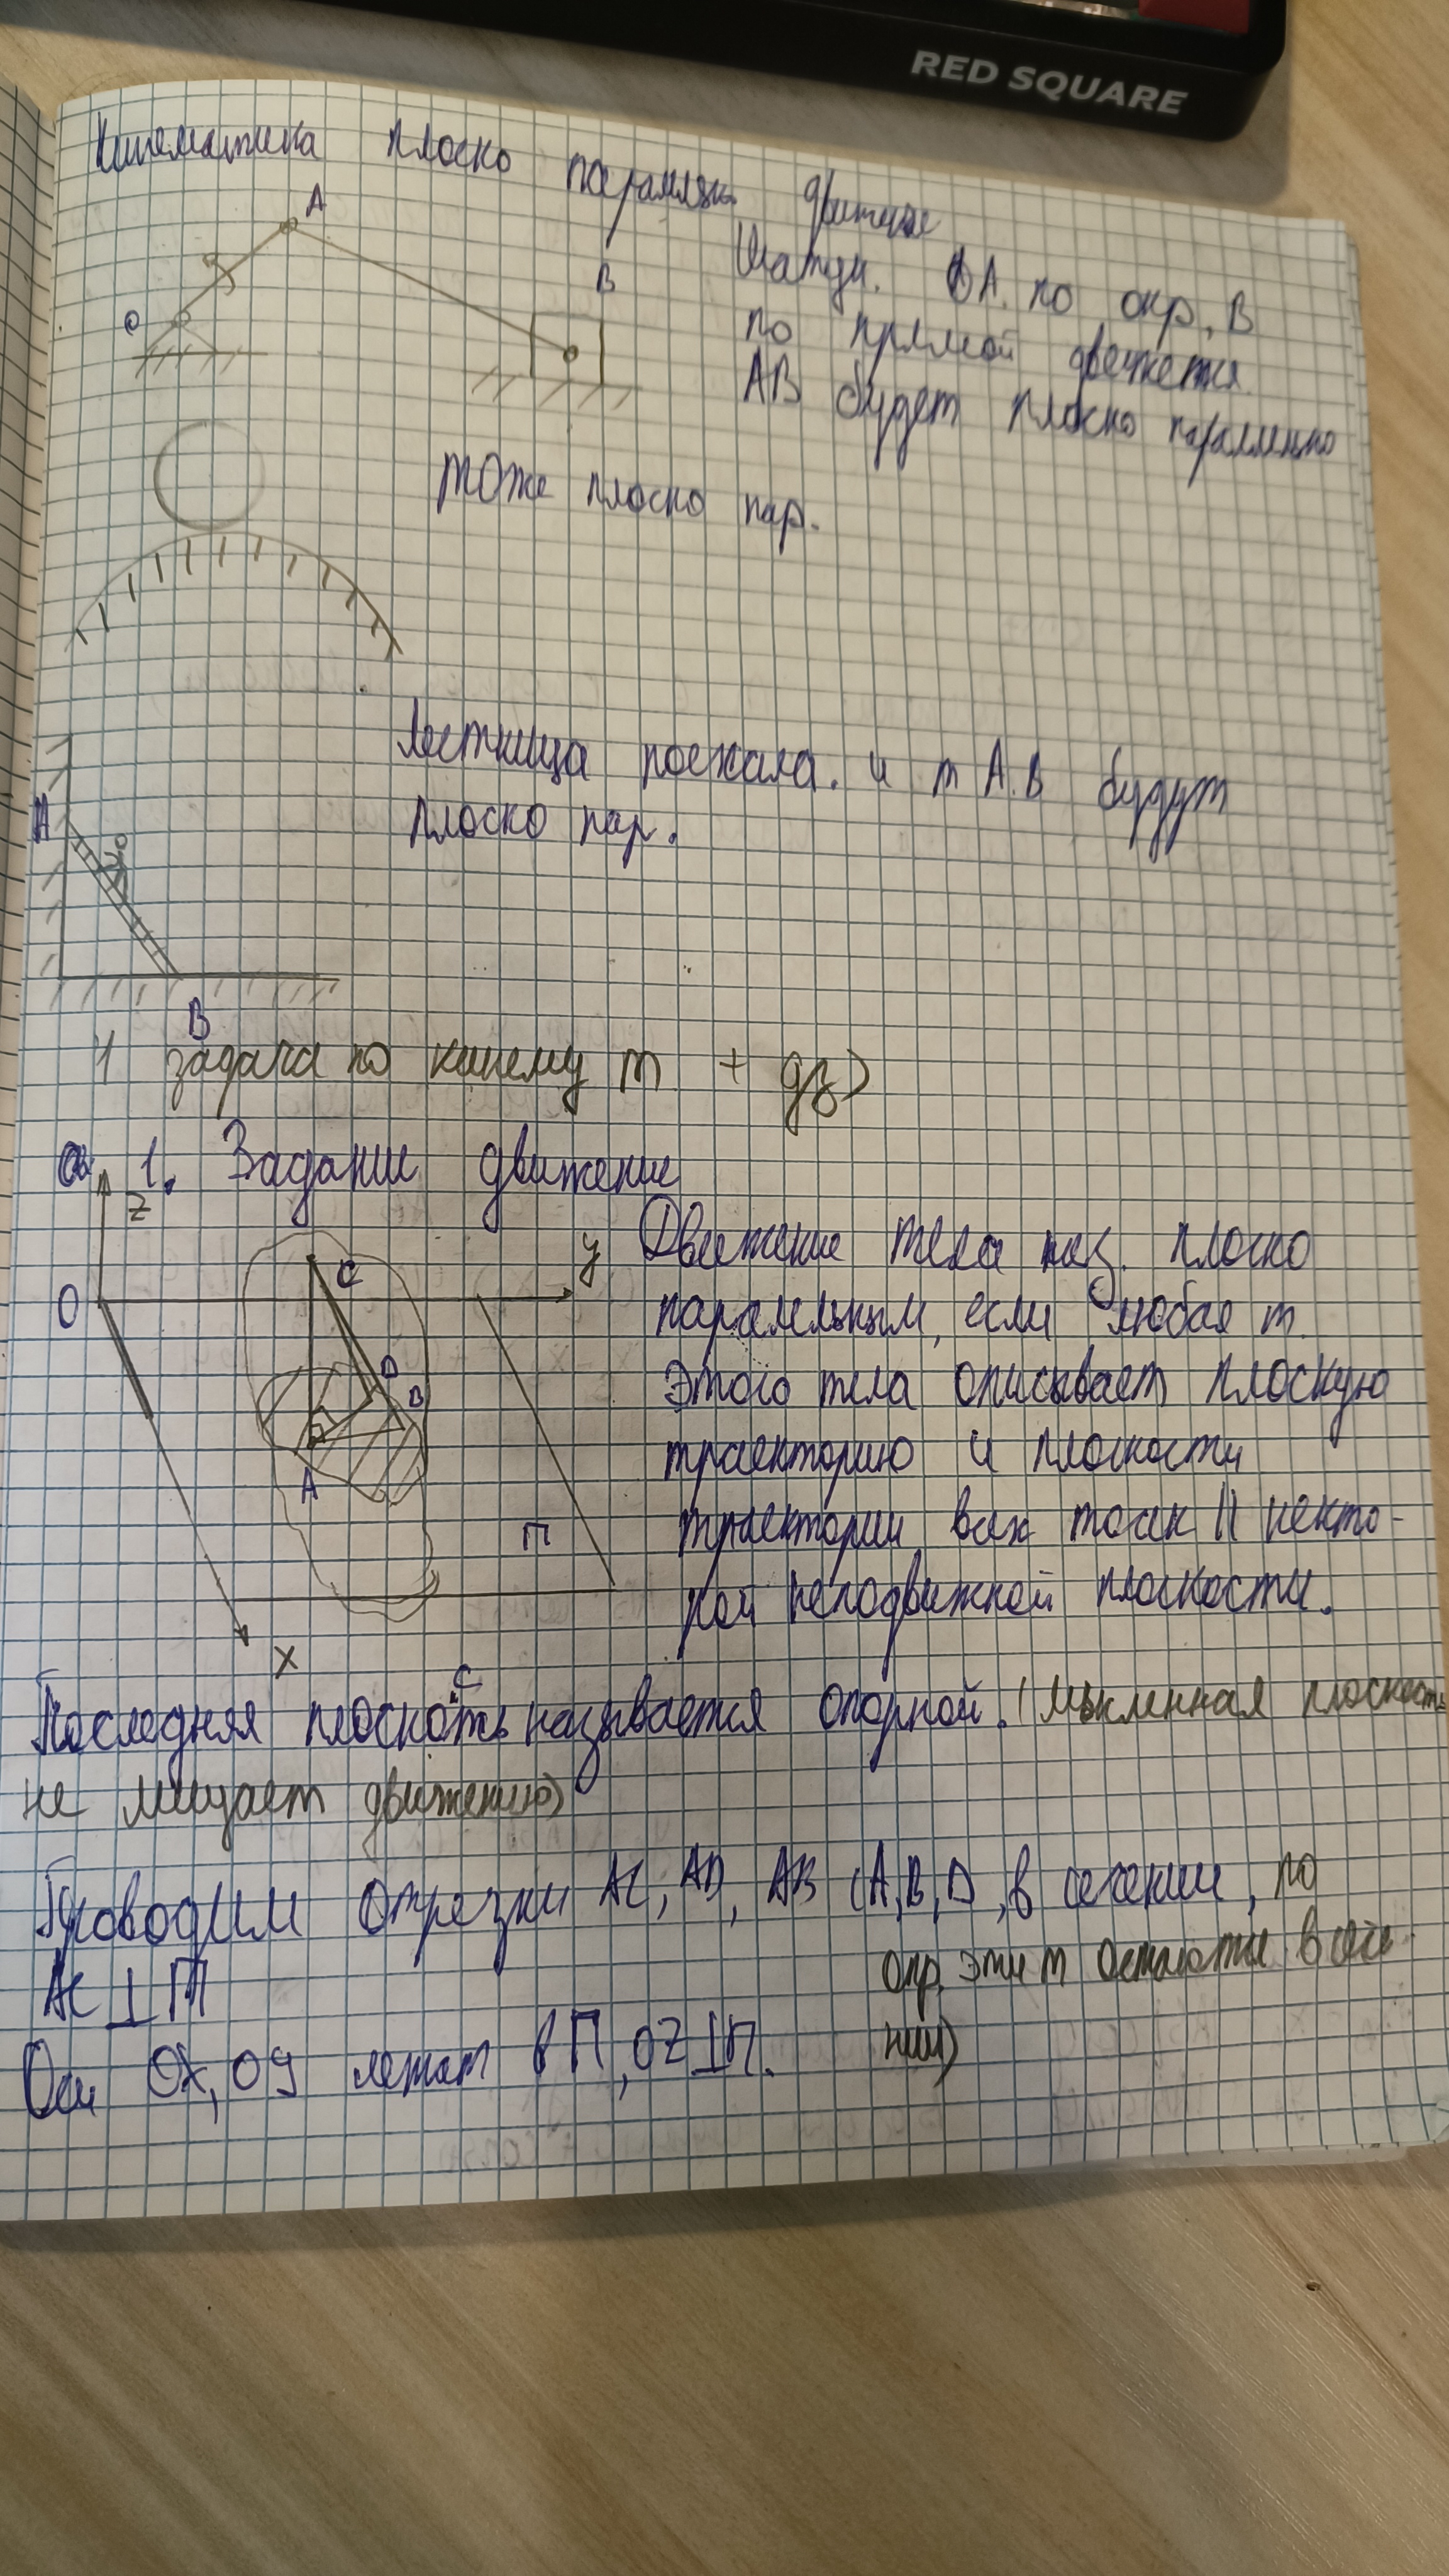 RED SQUARE
Кинематика плоско паралел. движение
A
O
B
Шатун. OA по окр, B
по прямой движется.
AB будет плоско параллельно
тоже плоско пар.
Лестница поехала. и т A.B будут
плоско пар.
A
B
1 задача по кинему т + дз)
1. Задание движение
z
O
y
C
D
B
A
П
x
Движение тела наз. плоско
паралельным, если любая т.
этого тела описывает плоскую
траекторию и плоскости
траектории всех точек || некото-
рой неподвижной плоскости.
Последняя плоскость называется опорной. (Мысленная плоскость
не мешает движению)
Проводим отрезки AC, AD, AB (A,B,D, в сечении, по
опр. эти т остаются в сече-
нии)
AC ⊥ П
Оси OX, OY лежат в П, OZ ⊥ П.